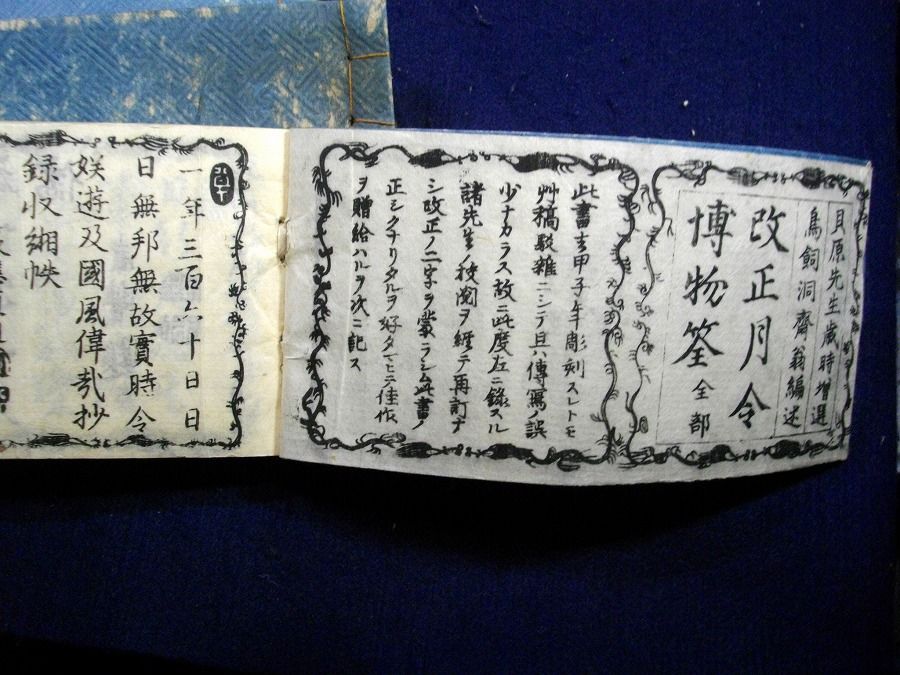 貝原先生歳時増選
鳥飼洞齋翁編述
改正月令
博物筌 全部
此書去甲子年彫刻スレトモ
艸稿駁雜ニシテ且傳寫ノ誤
少ナカラス故ニ此度左ニ録スル
諸先生ノ校閲ヲ經テ再訂ナ
シ改正ノ二字ヲ蒙ラシム此書ノ
正シクナリタルヲ好タマヒテ佳作
ヲ贈給ハルヲ次ニ記ス
一年三百六十日日
日無邦無故實時令
娯遊及國風偉哉抄
録収緗帙